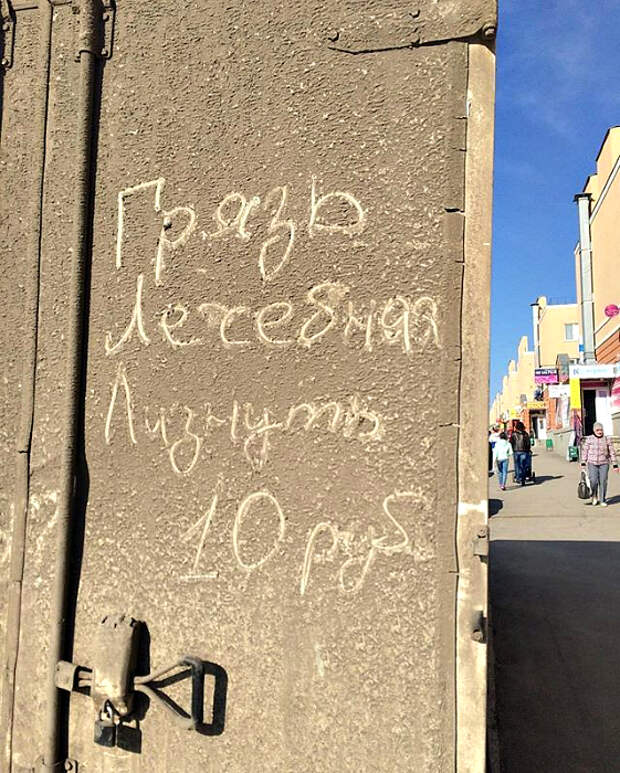 Грязь
Лечебная
Лизнуть
10 руб